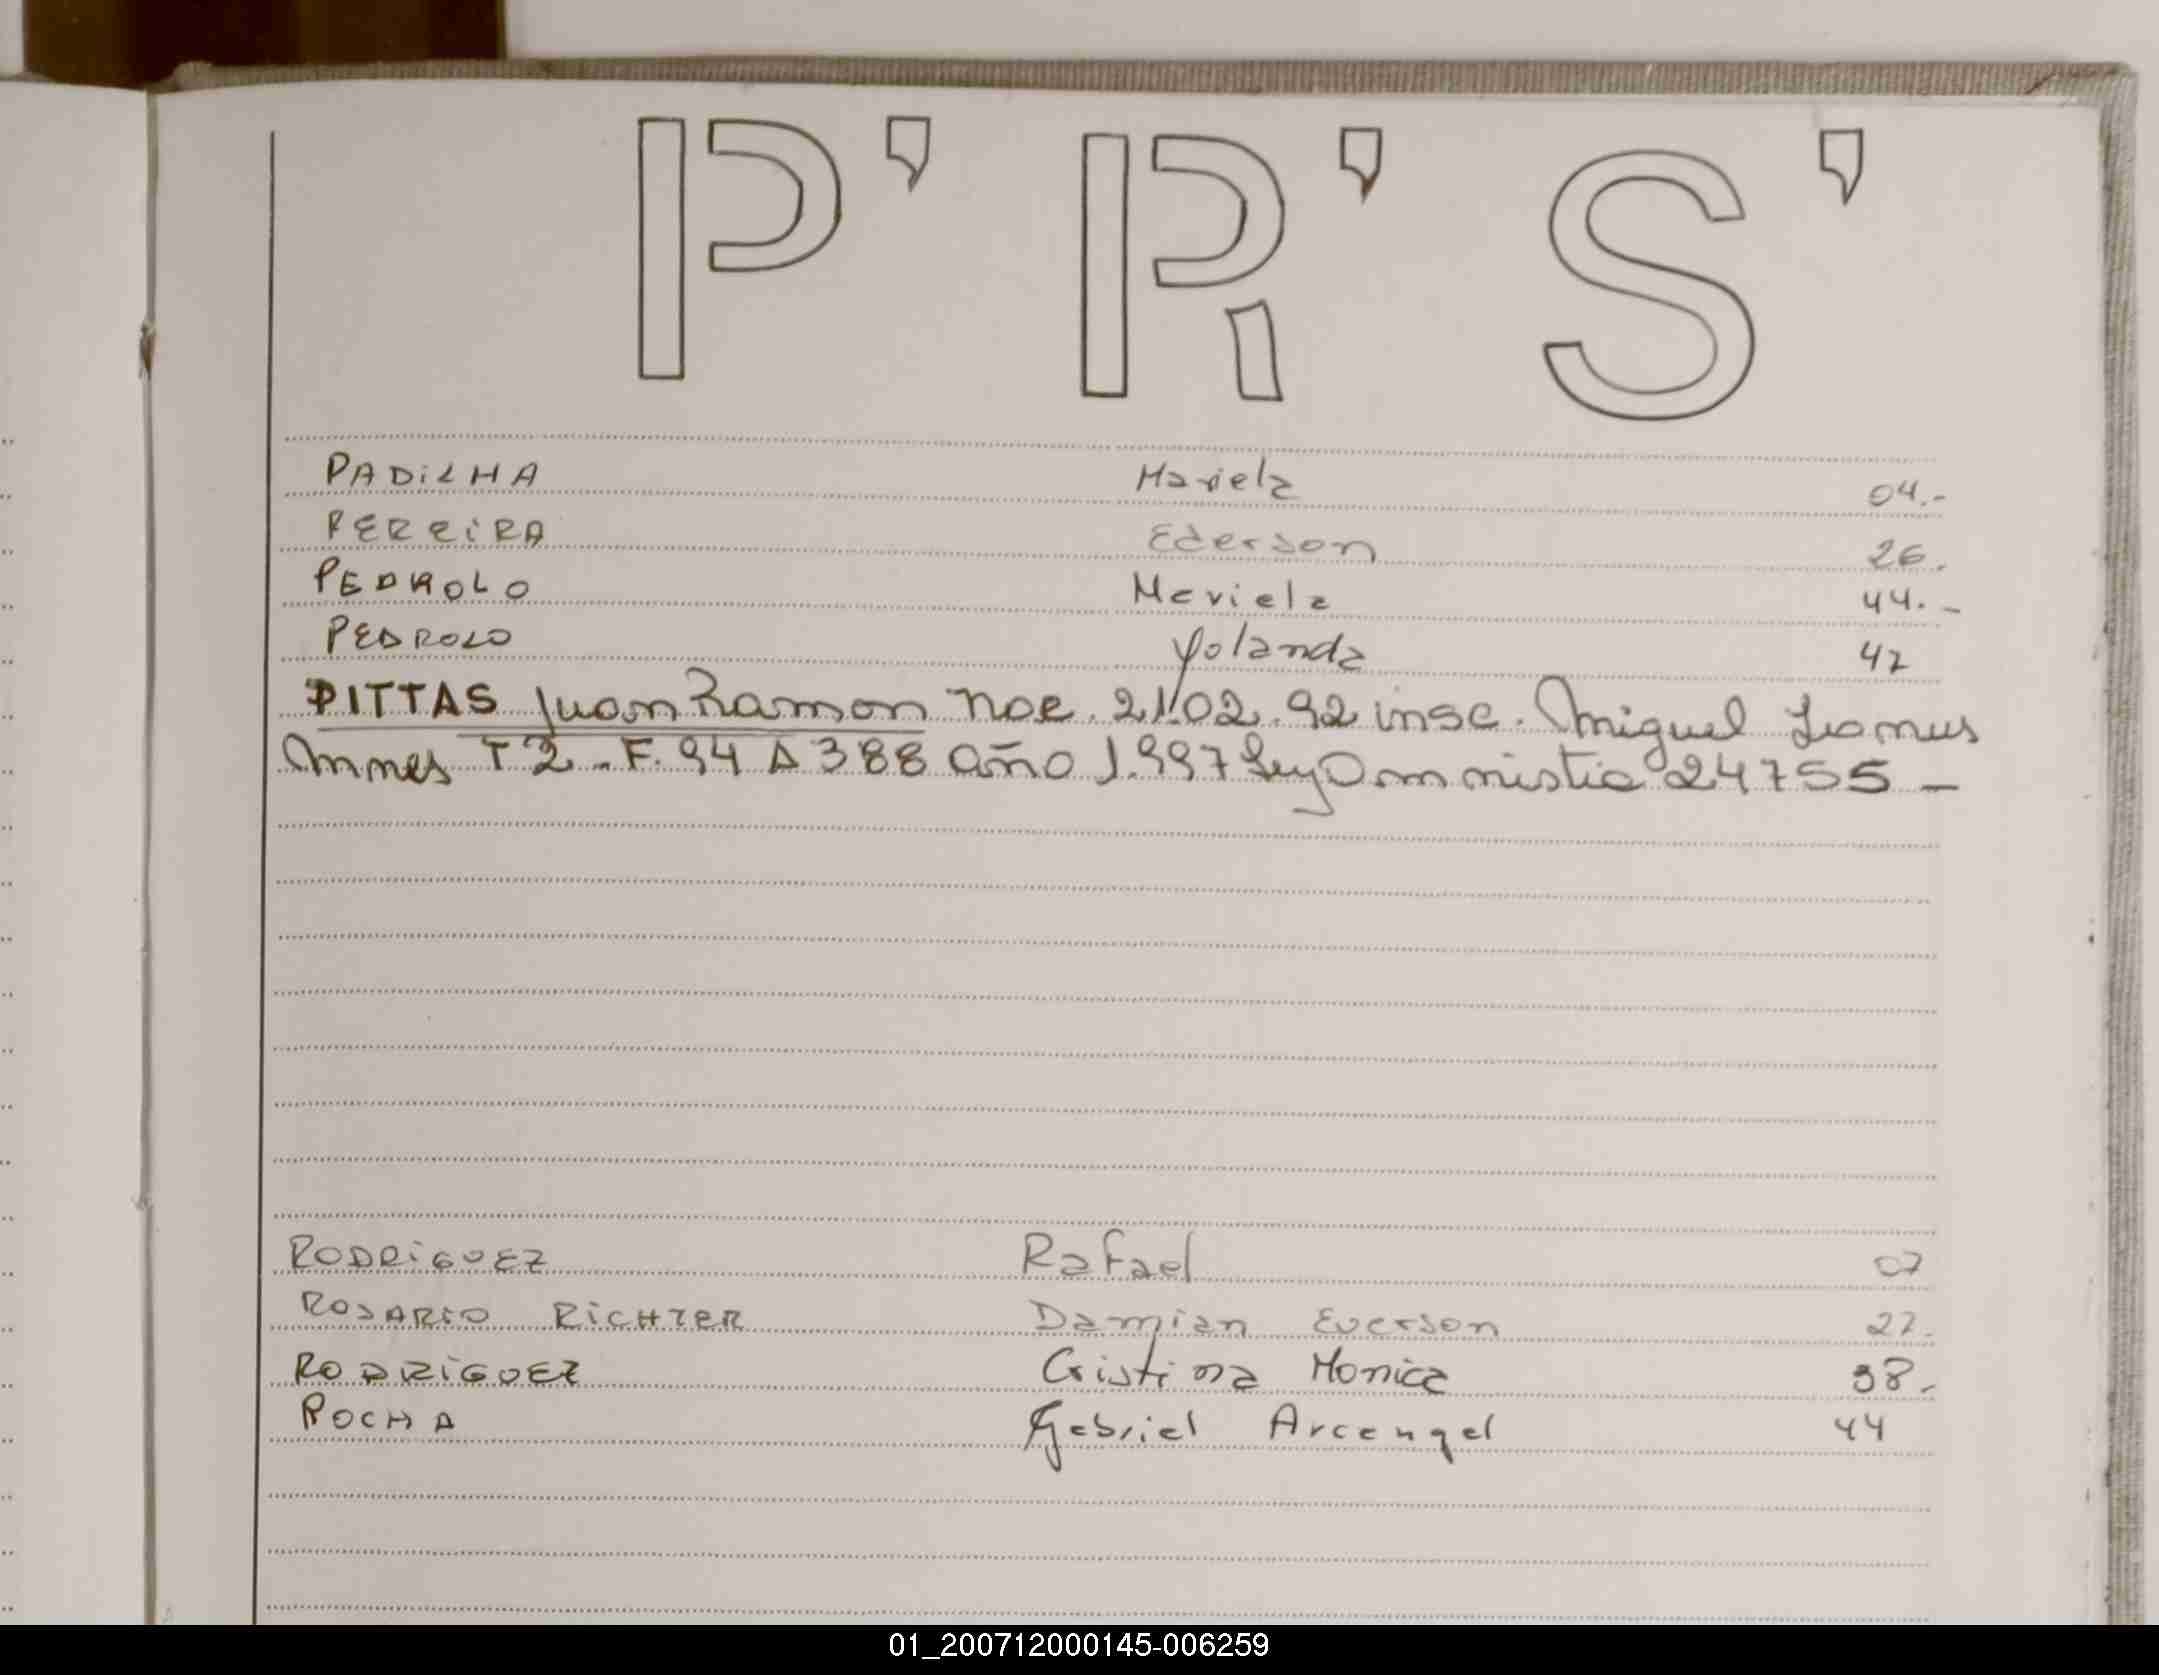 P' R' S'
PADILHA Mariela 04.-
PEREIRA Ederson 26.
PEDROLO Mariela 44.-
PEDROLO Yolanda 47
PITTAS Juan Ramon noc. 21.02.92 insc. Miguel
T 2 - F. 94 A 388 año 1.997 Ley Amnistia 24755 -
RODRIGUEZ Rafael 07
ROSARIO RICHTER Damian Everson 27.
RODRIGUEZ Cristina Monica 38.
ROCHA Gabriel Arcangel 44
01_200712000145-006259